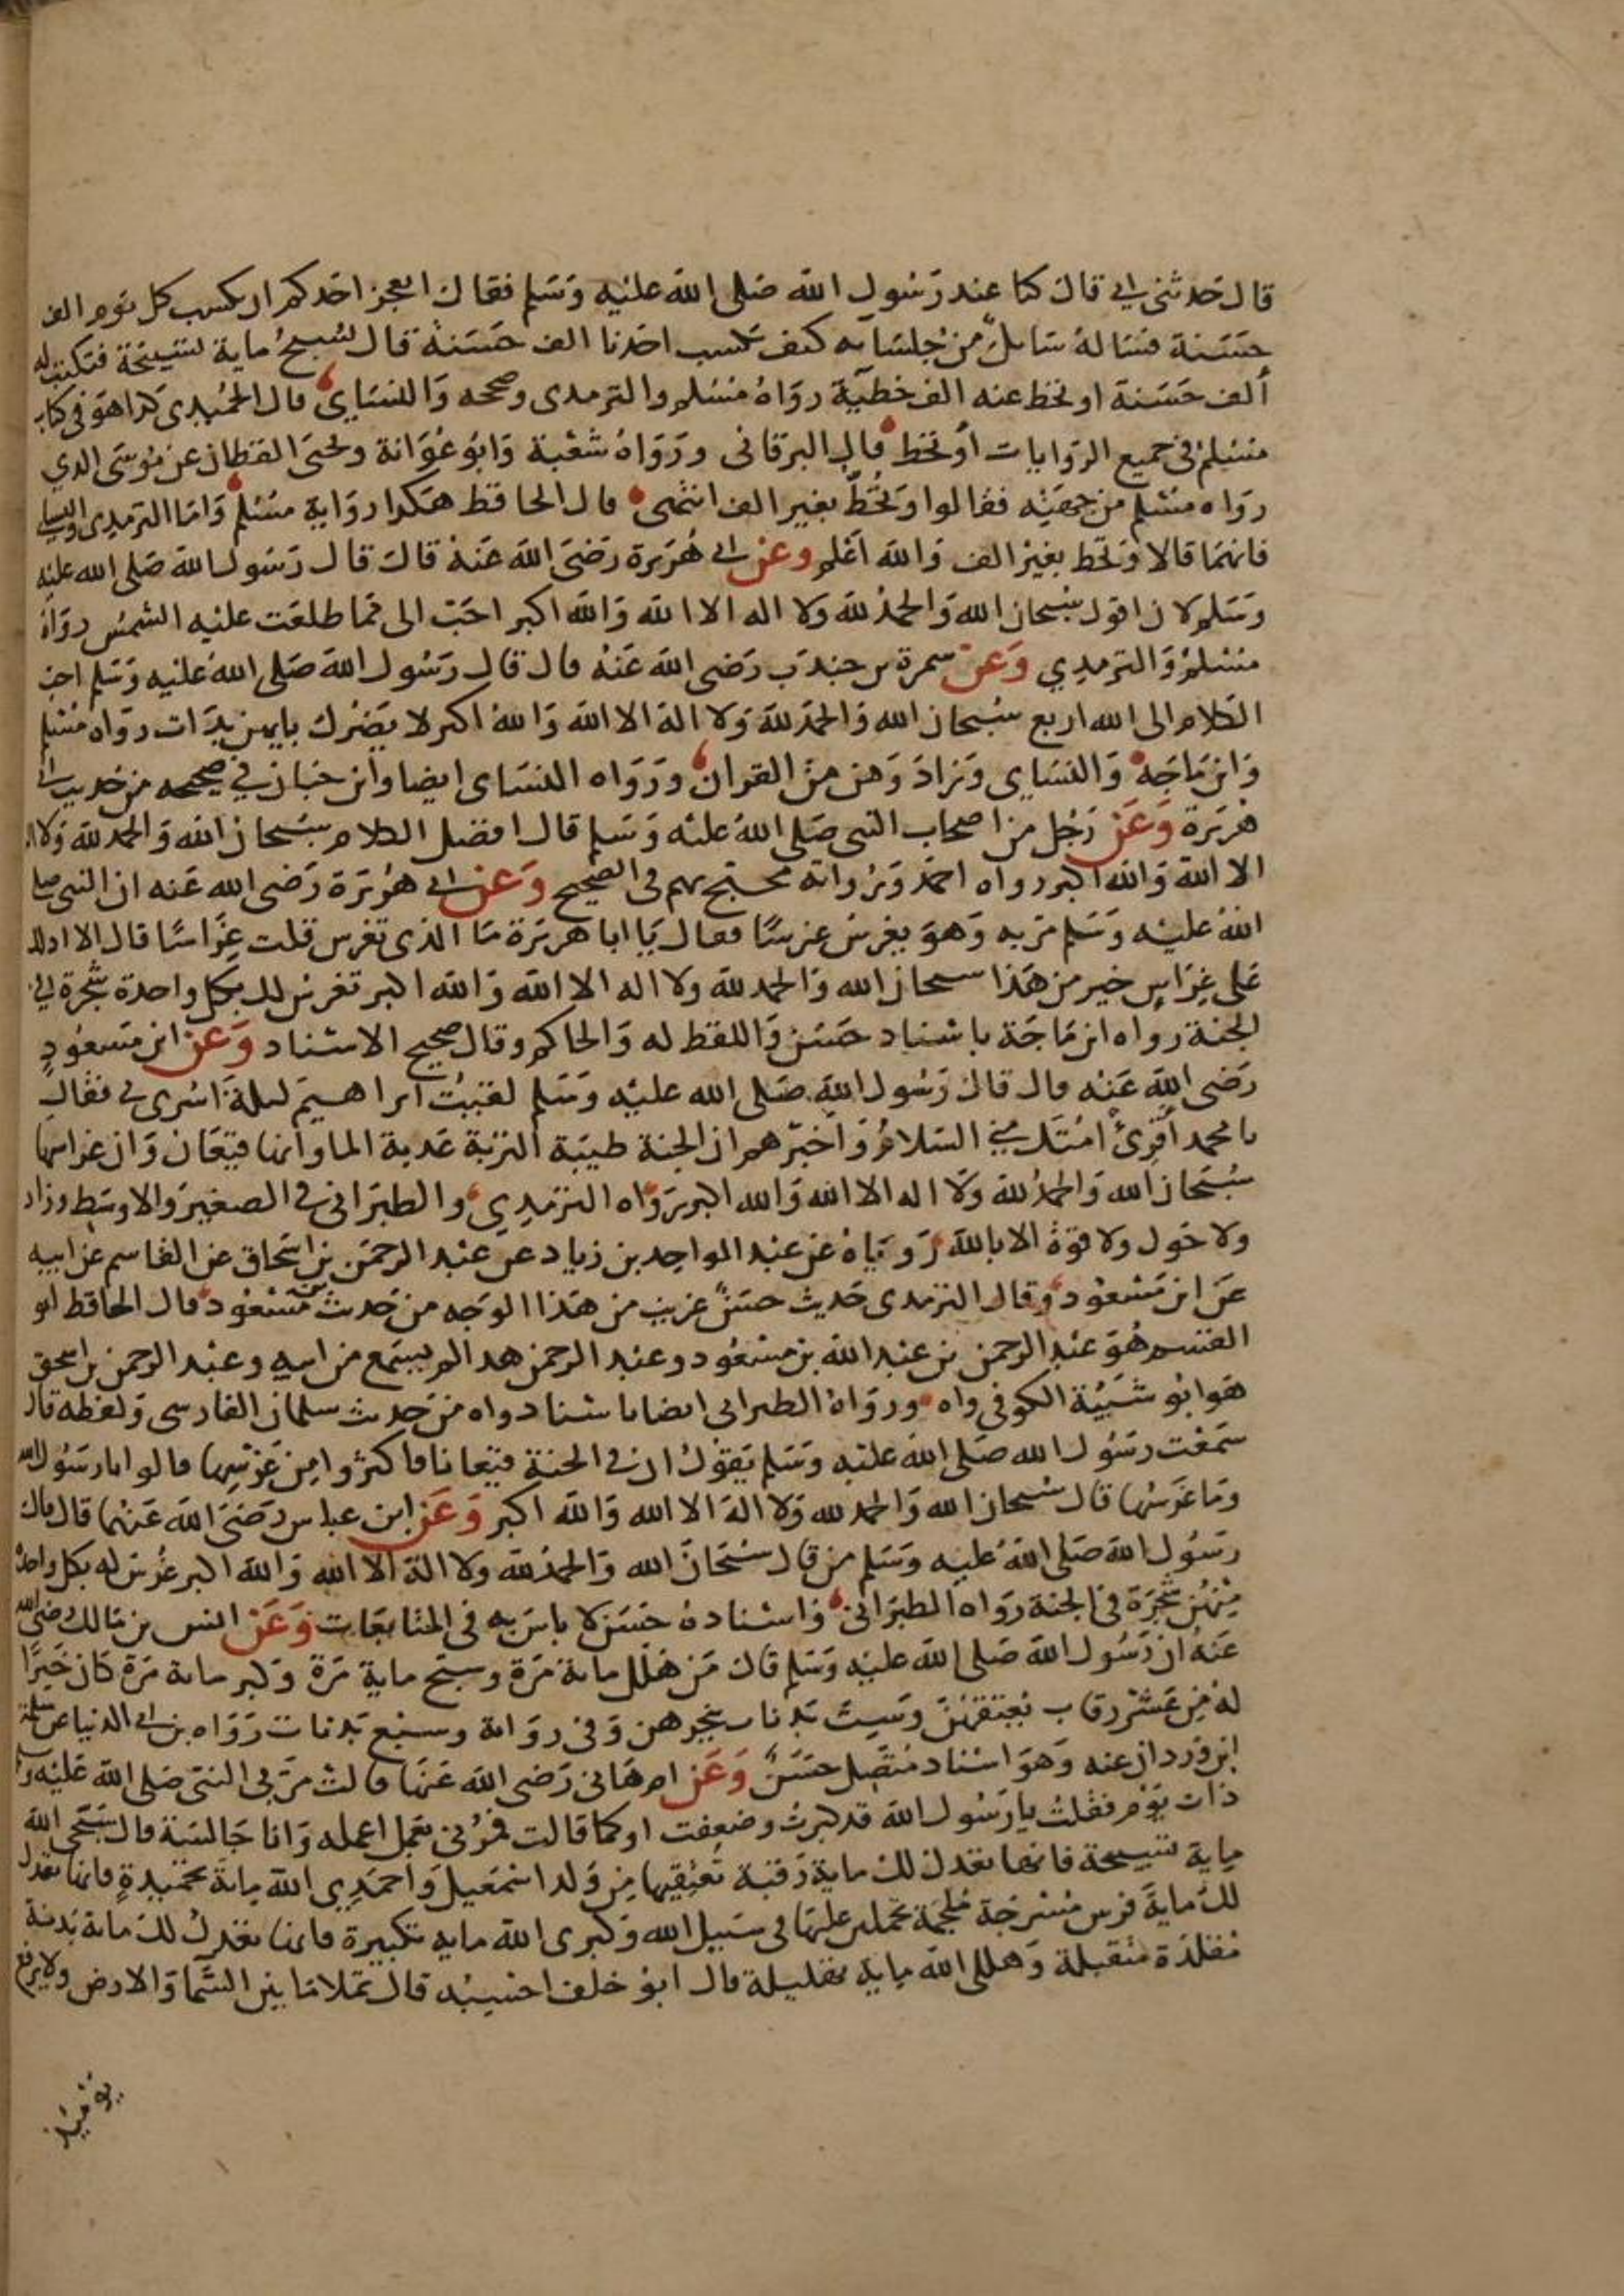 قال حدثني ابي قال كنا عند رسول الله صلى الله عليه وسلم فقال ايعجز احدكم ان يكسب كل يوم الف
حسنة فساله سايل من جلسايه كيف يكسب احدنا الف حسنة قال يسبح ماية تسبيحة فتكتب له
ألف حسنة او تحط عنه الف خطية رواه مسلم والترمدى وصححه والنساي قال الحميدي كدا هو في كتاب
مسلم في جميع الروايات أو تحط قال البرقاني ورواه شعبة وابو عوانة ويحيى القطان عن موسى الدي
رواه مسلم من جهته فقالوا وتحط بغير الف انتهى قال الحافظ هكدا رواية مسلم واما الترمدي والنساي
فانهما قالا وتحط بغير الف والله اعلم وعن ابي هريرة رضي الله عنه قال قال رسول الله صلى الله عليه
وسلم لان اقول سبحان الله والحمد لله ولا اله الا الله والله اكبر احب الى مما طلعت عليه الشمس رواه
مسلم والترمدي وعن سمرة بن جندب رضي الله عنه قال قال رسول الله صلى الله عليه وسلم احب
الكلام الى الله اربع سبحان الله والحمد لله ولا اله الا الله والله اكبر لا يضرك بايهن بدات رواه مسلم
وابن ماجه والنساي وزاد وهن من القران ورواه النساي ايضا وابن حبان في صحيحه من حديث ابي
هريرة وعن رجل من اصحاب النبي صلى الله عليه وسلم قال افضل الكلام سبحان الله والحمد لله ولا اله
الا الله والله اكبر رواه احمد ورواته محتج بهم في الصحيح وعن ابي هريرة رضى الله عنه ان النبي صلى
الله عليه وسلم مر به وهو يغرس غرسا فقال يا ابا هريرة ما الذي تغرس قلت غراسا قال الا ادلك
على غراس خير من هذا سبحان الله والحمد لله ولا اله الا الله والله اكبر تغرس لك بكل واحدة شجرة في
الجنة رواه ابن ماجة باسناد حسن واللفظ له والحاكم وقال صحيح الاسناد وعن ابن مسعود
رضى الله عنه قال قال رسول الله صلى الله عليه وسلم لقيت ابراهيم ليلة اسرى بي فقال
يا محمد أقرئ امتك مني السلام واخبرهم ان الجنة طيبة التربة عدبة الما وانها قيعان وان غراسها
سبحان الله والحمد لله ولا اله الا الله والله اكبر رواه الترمدي والطبراني في الصغير والاوسط وزاد
ولا حول ولا قوة الا بالله روياه عن عبد الواحد بن زياد عن عبد الرحمن بن اسحاق عن القاسم عن ابيه
عن ابن مسعود وقال الترمدى حديث حسن غريب من هذا الوجه من حديث بن مسعود قال الحافظ ابو
القسم هو عبد الرحمن بن عبد الله بن مسعود وعبد الرحمن هدا لم يسمع من ابيه وعبد الرحمن بن اسحق
هو ابو شيبة الكوفي واه ورواه الطبراني ايضا باسناد واه من حديث سلمان الفارسي ولفظه قال
سمعت رسول الله صلى الله عليه وسلم يقول ان في الجنة قيعانا فاكثروا من غرسها قالوا يا رسول الله
وما غرسها قال سبحان الله والحمد لله ولا اله الا الله والله اكبر وعن ابن عباس رضى الله عنهما قال قال
رسول الله صلى الله عليه وسلم من قال سبحان الله والحمد لله ولا اله الا الله والله اكبر غرس له بكل واحدة
منهن شجرة في الجنة رواه الطبراني واسناده حسن لا باس به في المتابعات وعن انس بن مالك رضى الله
عنه ان رسول الله صلى الله عليه وسلم قال من هلل ماية مرة وسبح ماية مرة وكبر ماية مرة كان خيرا
له من عشر رقاب يعتقهن وست بدنات ينحرهن وفي رواية وسبع بدنات رواه بن ابي الدنيا عن سلمة
ابن وردان عنه وهو اسناد متصل حسن وعن ام هاني رضى الله عنها قالت مر بي النبي صلى الله عليه وسلم
ذات يوم فقلت يا رسول الله قد كبرت وضعفت او كما قالت فمرني بعمل اعمله وانا جالسة قال سبحي الله
ماية تسبيحة فانها تعدل لك ماية رقبة تعتقيها من ولد اسمعيل واحمدي الله ماية تحميدة فانها تعدل
لك ماية فرس مسرجة ملجمة تحملين عليها في سبيل الله وكبرى الله ماية تكبيرة فانها تعدل لك ماية بدنة
مقلدة متقبلة وهللي الله ماية تهليلة قال ابو خلف احسبه قال تملا ما بين السما والارض ولا يرفع
يوميذ